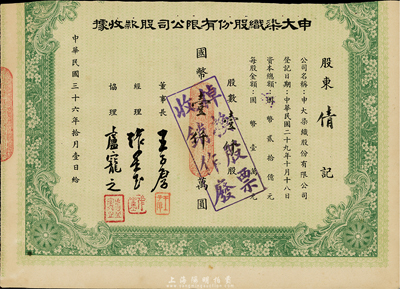 申大染織股份有限公司股款收據
股東 倩記
公司名稱：申大染織股份有限公司
登記日期：中華民國二十九年十月十八日
資本總額：國幣貳拾億元
每股金額：國幣壹元
股數 股
國幣壹 萬圓
董事長
經理
協理 盧寵之
中華民國三十六年拾月壹日給
掉換股票
收銷作廢
上海陽明拍賣